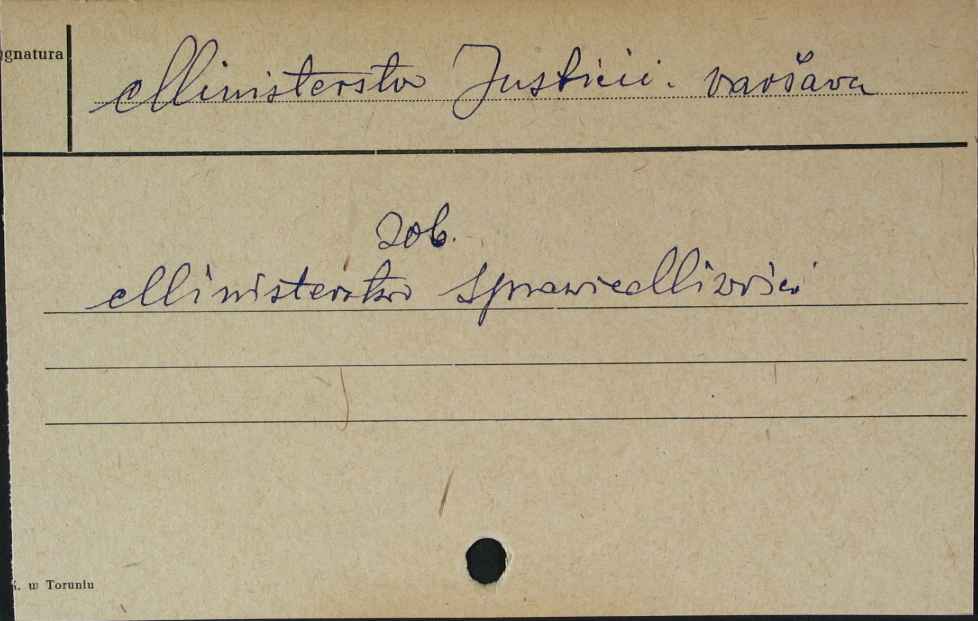 ygnatura
Ministerstvo Justicii. Varšava
zob.
Ministerstwo Sprawiedliwości
K. w Toruniu